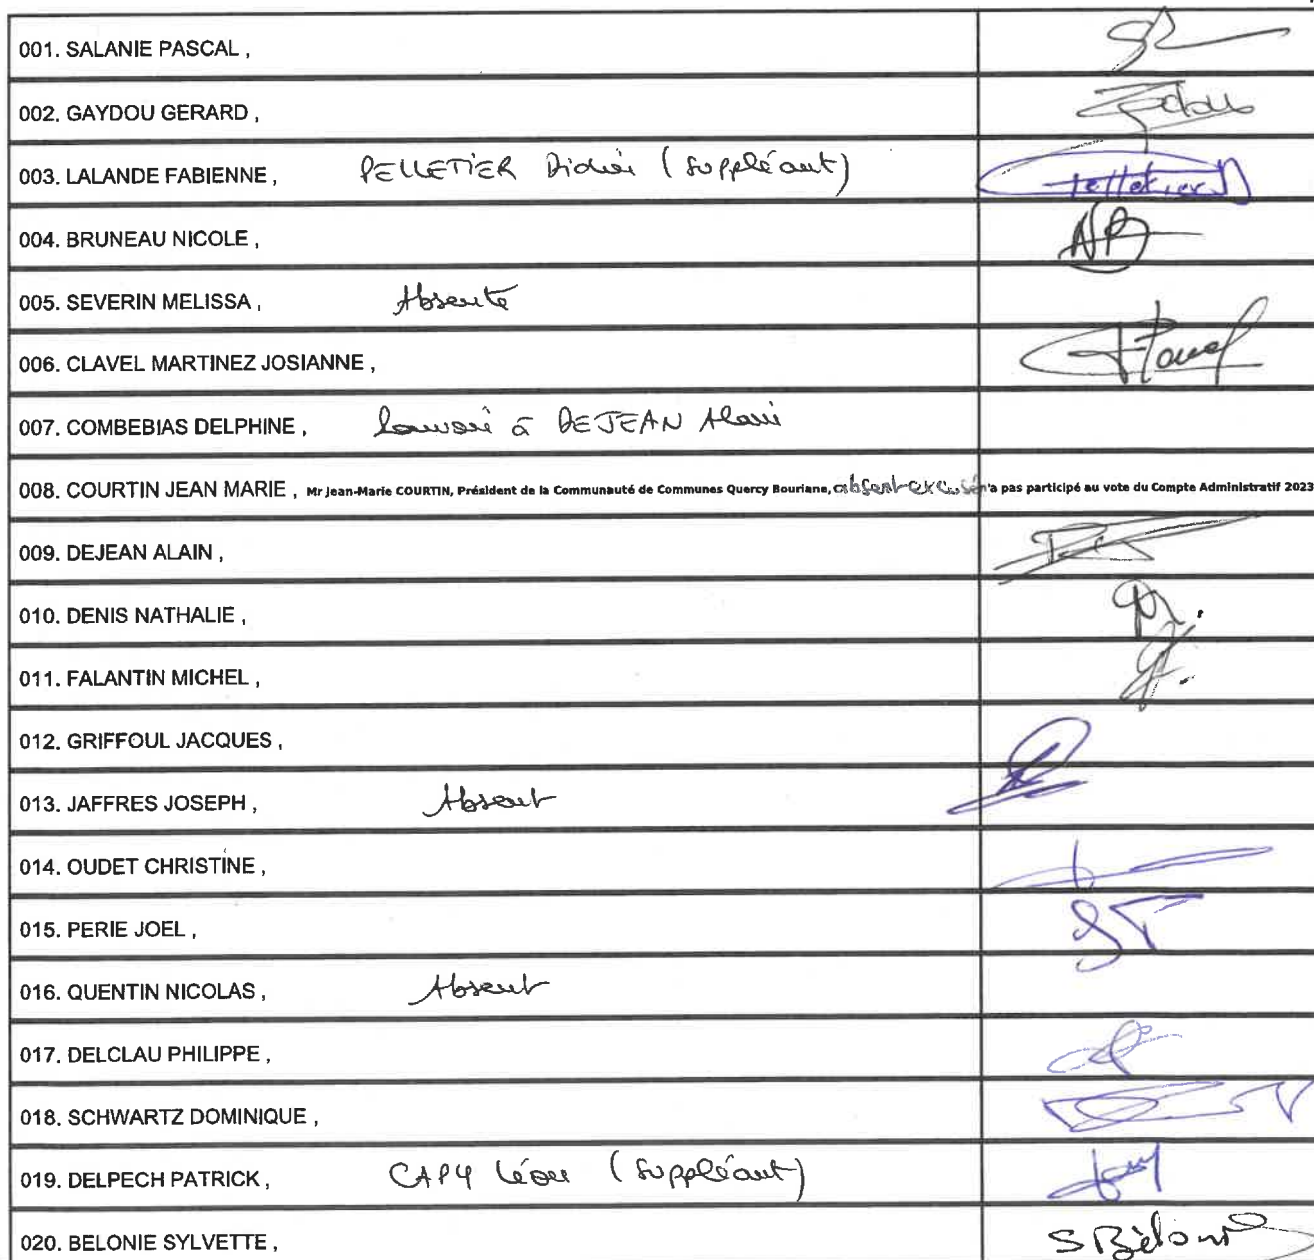 001. SALANIE PASCAL ,
002. GAYDOU GERARD ,
003. LALANDE FABIENNE , PELLETIER Didier (suppléant) Pelletier D
004. BRUNEAU NICOLE , NB
005. SEVERIN MELISSA , Absente
006. CLAVEL MARTINEZ JOSIANNE ,
007. COMBEBIAS DELPHINE , Pouvoir à DEJEAN Alain
008. COURTIN JEAN MARIE , Mr Jean-Marie COURTIN, Président de la Communauté de Communes Quercy Bouriane, absent excusé n'a pas participé au vote du Compte Administratif 2023
009. DEJEAN ALAIN ,
010. DENIS NATHALIE ,
011. FALANTIN MICHEL ,
012. GRIFFOUL JACQUES ,
013. JAFFRES JOSEPH , Absent
014. OUDET CHRISTINE ,
015. PERIE JOEL ,
016. QUENTIN NICOLAS , Absent
017. DELCLAU PHILIPPE ,
018. SCHWARTZ DOMINIQUE ,
019. DELPECH PATRICK , CAPY Léon (suppléant)
020. BELONIE SYLVETTE , S Bèlonie